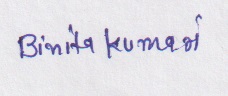 Binita kumari